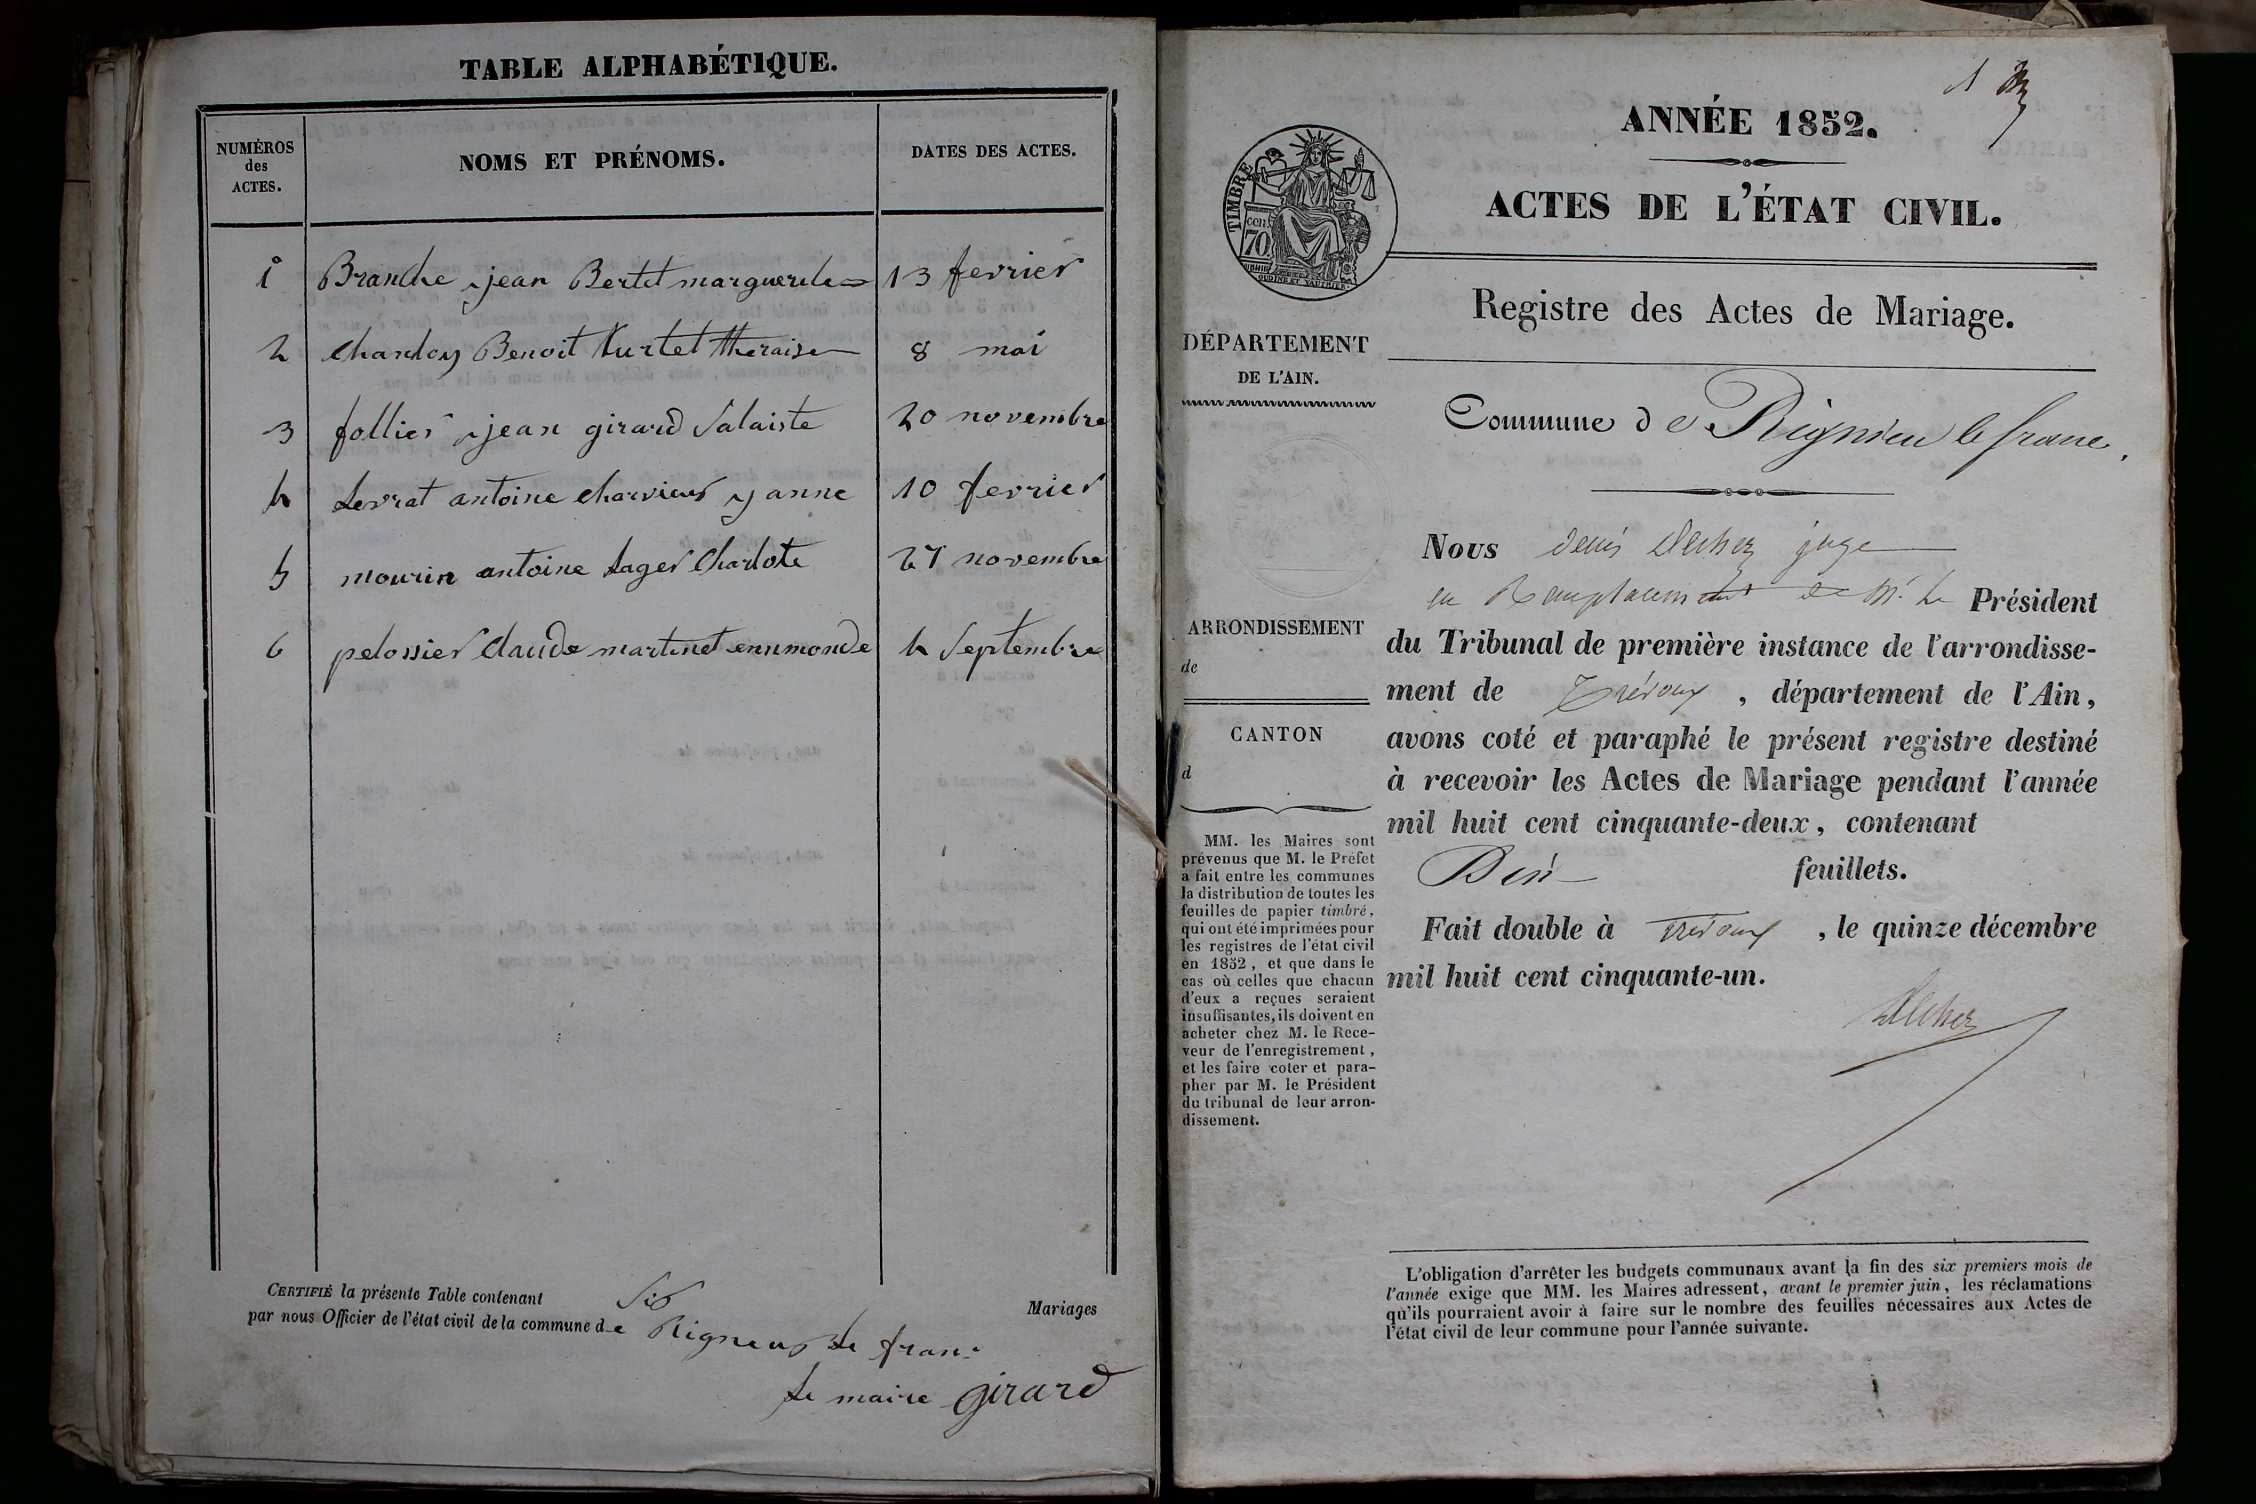 TABLE ALPHABÉTIQUE.
NUMÉROS
des
ACTES.
NOMS ET PRÉNOMS.
DATES DES ACTES.
1 Branche jean Bertet marguerite 13 fevrier
2 chardon Benoit Curtet theraise 8 mai
3 follier jean girard Salaiste 20 novembre
4 Levrat antoine charvieux anne 10 fevrier
5 mourin antoine Lager Charlote 27 novembre
6 pelossier Claude martinet ennmonde 4 Septembre
CERTIFIÉ la présente Table contenant Six Mariages
par nous Officier de l'état civil de la commune de Rigneux Le franc
Le maire girard
1
ANNÉE 1852.
ACTES DE L'ÉTAT CIVIL.
TIMBRE
70
cen.
Registre des Actes de Mariage.
DÉPARTEMENT
DE L'AIN.
Commune de Rignieu le franc.
Nous Denis juge
en Remplacement de Mr. Le Président
du Tribunal de première instance de l'arrondisse-
ment de Trévoux, département de l'Ain,
avons coté et paraphé le présent registre destiné
à recevoir les Actes de Mariage pendant l'année
mil huit cent cinquante-deux, contenant
feuillets.
Fait double à Trévoux, le quinze décembre
mil huit cent cinquante-un.
ARRONDISSEMENT
de
CANTON
d
MM. les Maires sont
prévenus que M. le Préfet
a fait entre les communes
la distribution de toutes les
feuilles de papier timbré,
qui ont été imprimées pour
les registres de l'état civil
en 1852, et que dans le
cas où celles que chacun
d'eux a reçues seraient
insuffisantes, ils doivent en
acheter chez M. le Rece-
veur de l'enregistrement,
et les faire coter et para-
pher par M. le Président
du tribunal de leur arron-
dissement.
L'obligation d'arrêter les budgets communaux avant la fin des six premiers mois de
l'année exige que MM. les Maires adressent, avant le premier juin, les réclamations
qu'ils pourraient avoir à faire sur le nombre des feuilles nécessaires aux Actes de
l'état civil de leur commune pour l'année suivante.